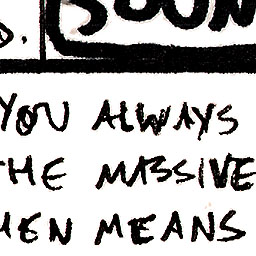 D. SOUN
YOU ALWAYS
THE MASSIVE
HEN MEANS